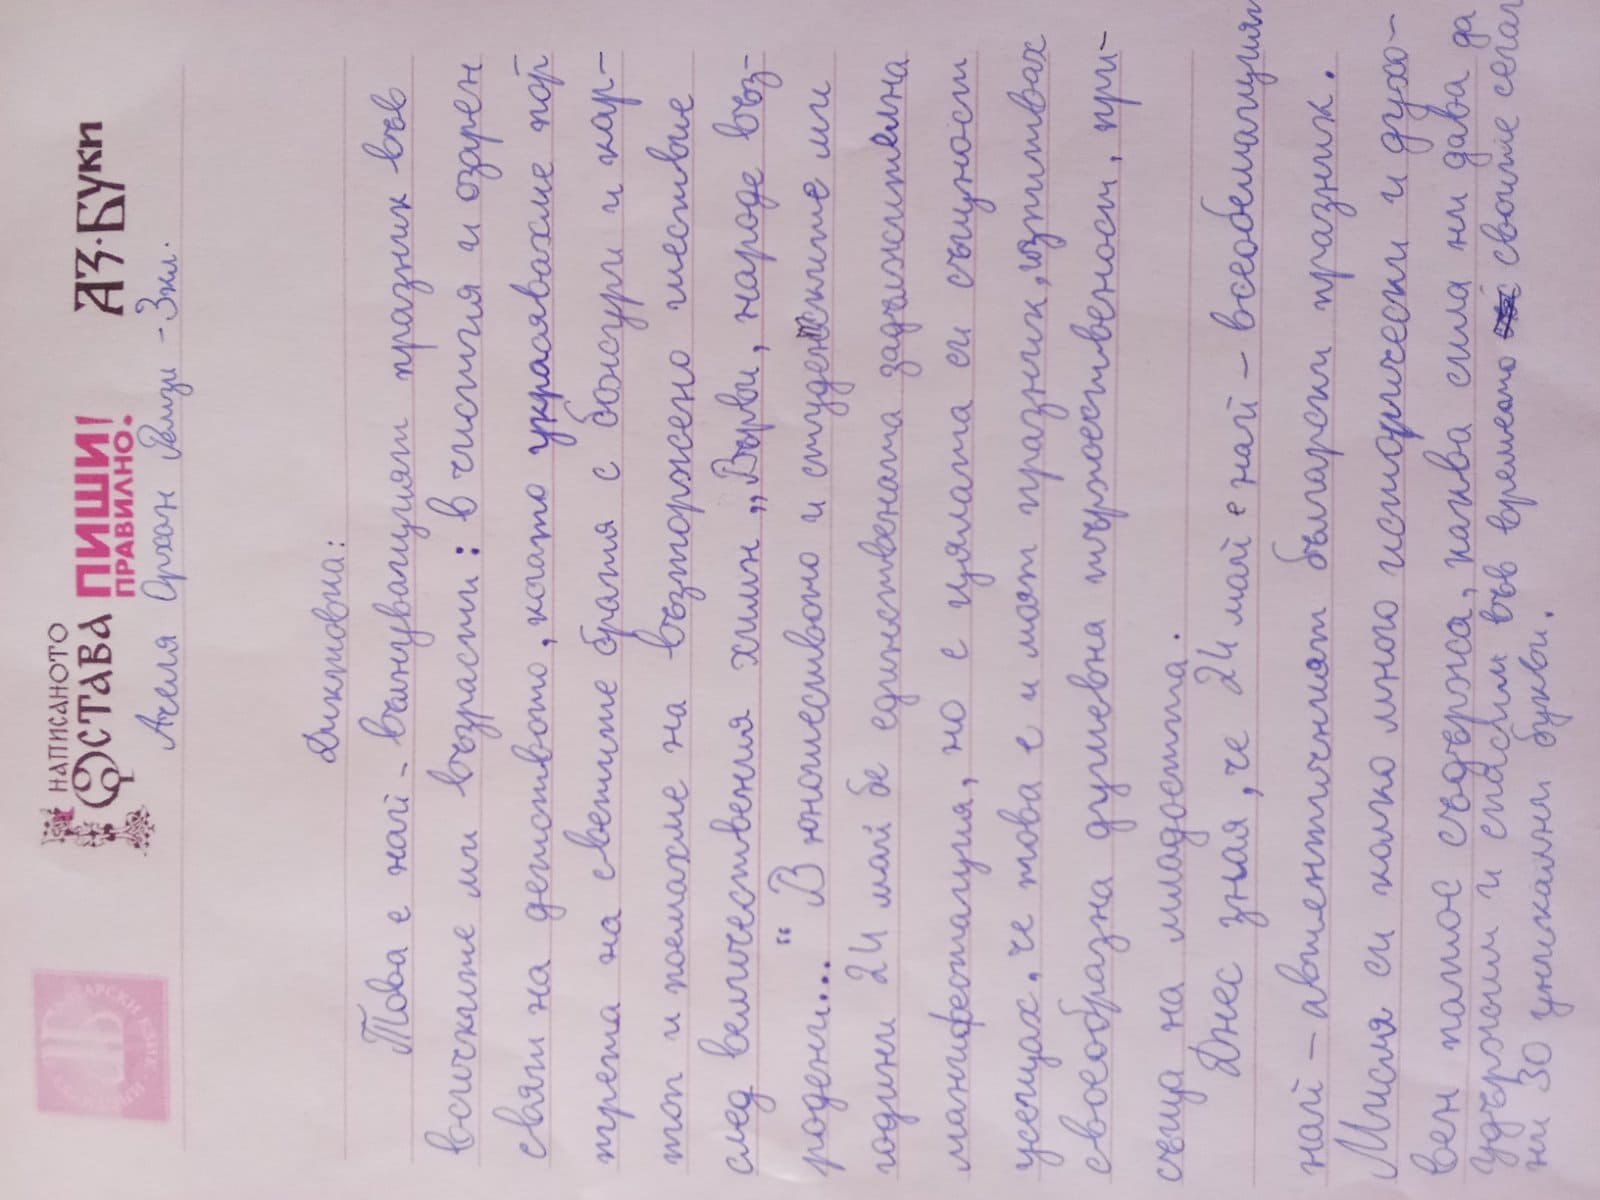 НАПИСАНОТО
ОСТАВА
ПИШИ!
ПРАВИЛНО.
АЗ·БУКИ
Ачеля Орхан Рамзи - 3кл.
Диктовка:
Това е най - вълнуващият празник във
всичките ми възрасти: в чистия и озарен
свят на детството, когато украсявахме пор
трета на светите братя с божури и кар-
тон и поемахме на възторжено шествие
след величествения химн „Върви, народе въз-
родени..." В юношеството и студентските ми
години 24 май бе единствената задължителна
манифестация, но с цялата си същност
усещах, че това е и моят празник, изпитвах
своеобразна душевна тържественост, при-
съща на младостта.
Днес зная, че 24 май е най - всеобемащия
най - автентичният български празник.
Мисля си колко много исторически и духо-
вен патос съдържа, каква сила ни дава да
удържим и спасим във времето своите сегаш
ни 30 уникални букви.